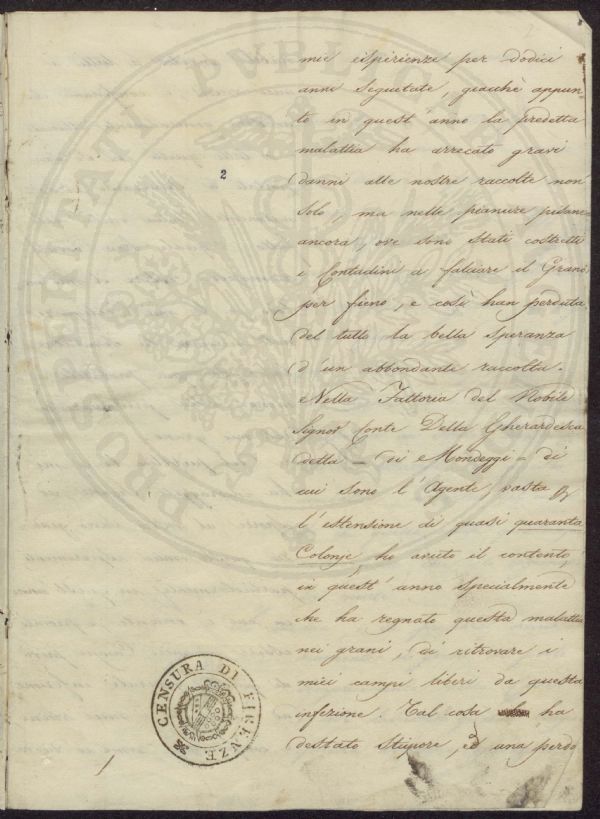 mie esperienze per dodici
anni seguitate, giacchè appun
to in quest'anno la predetta
malattia ha arrecato gravi
danni alle nostre raccolte non
solo, ma nelle pianure pisane
ancora, ove sono stati costretti
i Contadini a falciare il Grano
per fieno, e così han perduta
del tutto la bella speranza
d'un abbondante raccolta.
Nella Fattoria del Nobile
Signor Conte Della Gherardesca
detta = di Mondeggi = di
cui sono l'Agente, vasta
l'estensione di quasi quaranta
Colonje ho avuto il contento
in quest'anno specialmente
che ha regnato questa malattia
nei grani, di ritrovare i
miei campi liberi da questa
infezione. Tal cosa ha
destato Stupore, ed una perso
2
CENSURA DI FIRENZE
PROSPERITATI PVBLICAE